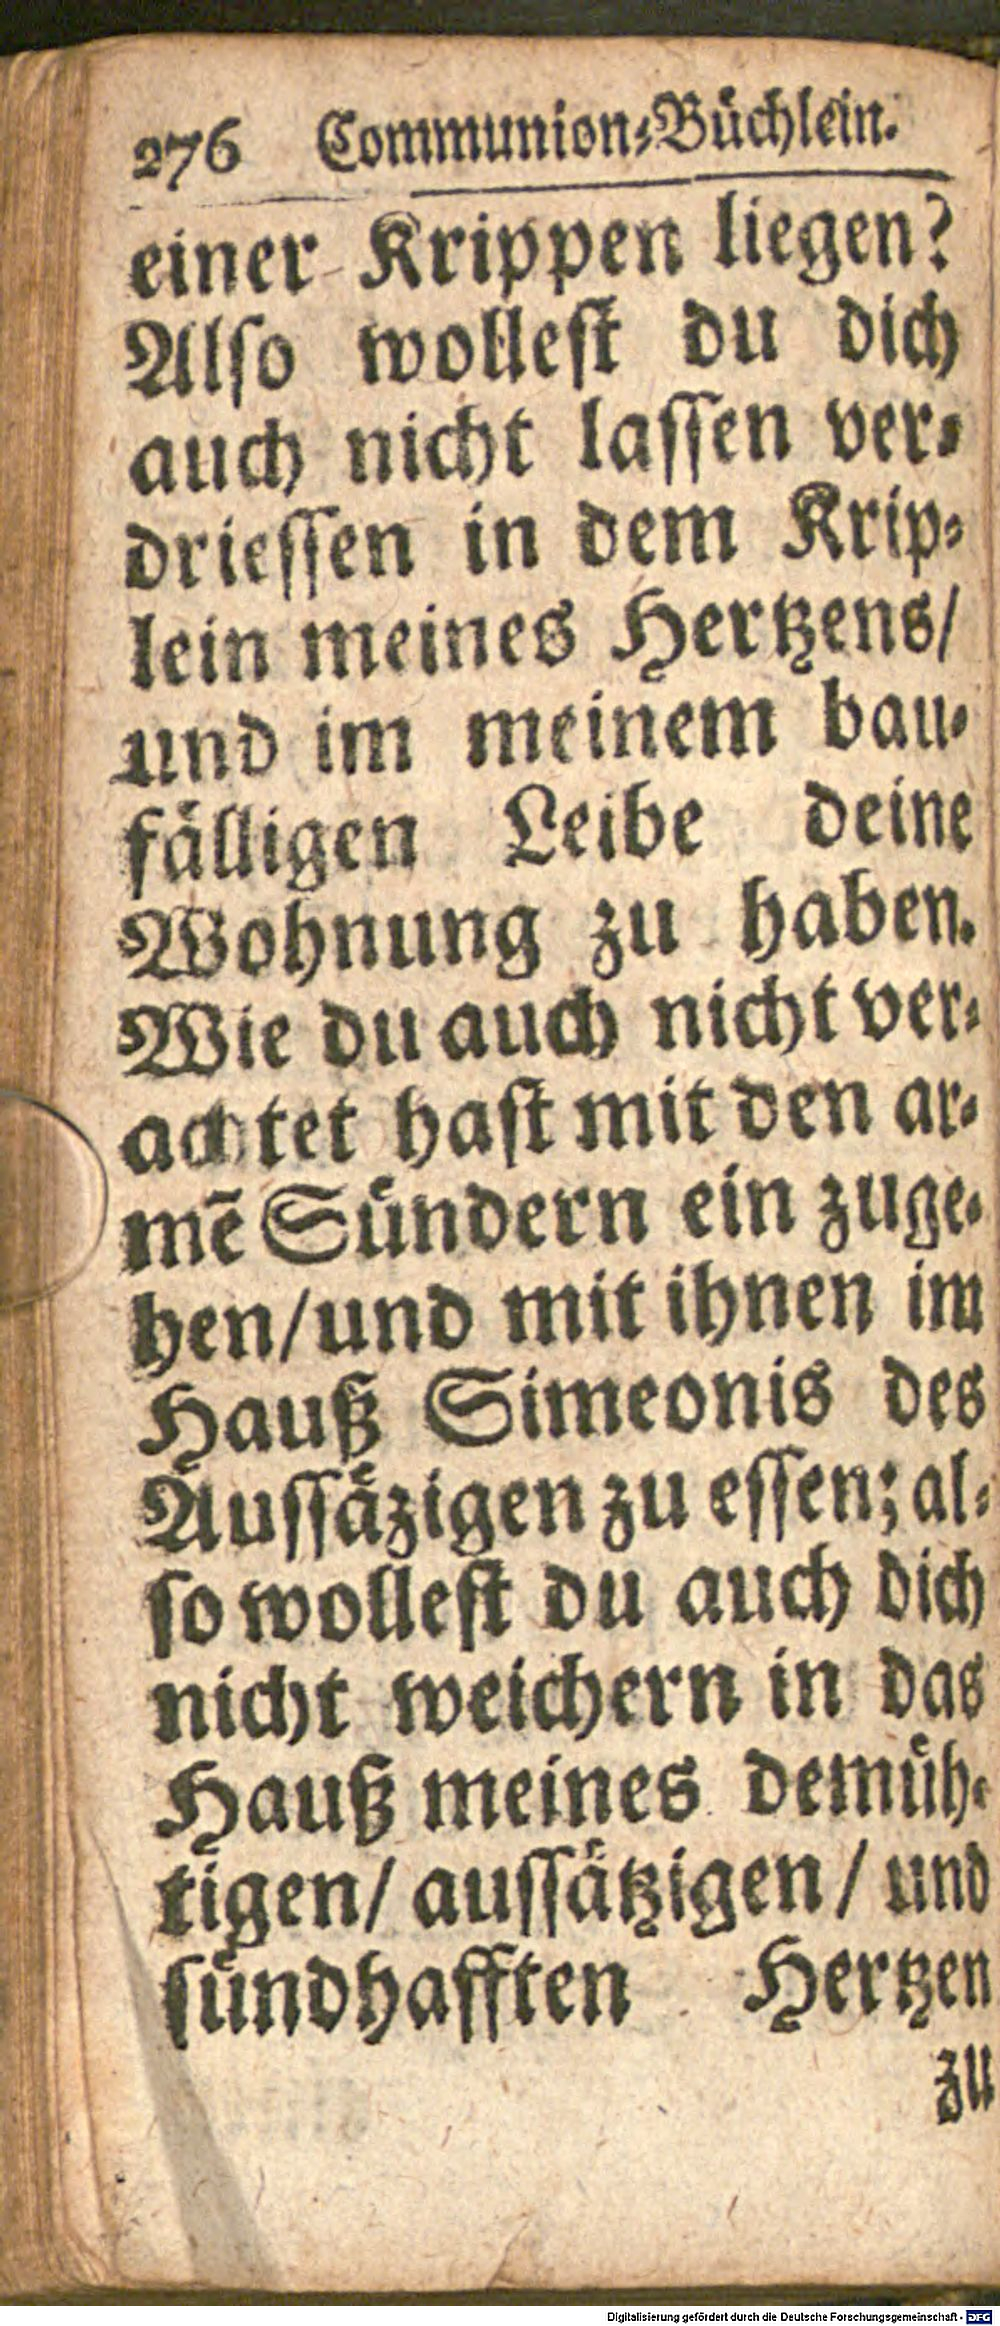 276 Communion-Büchlein.
einer Krippen liegen?
Also wollest du dich
auch nicht lassen ver-
driessen in dem Krip-
lein meines Hertzens/
und im meinem bau-
fälligen Leibe deine
Wohnung zu haben.
Wie du auch nicht ver-
achtet hast mit den ar-
mẽ Sündern ein zuge-
hen/und mit ihnen im
Hauß Simeonis des
Aussäzigen zu essen; al-
so wollest du auch dich
nicht weichern in das
Hauß meines demüh-
tigen/ aussätzigen/ und
sündhafften Hertzen
zu
Digitalisierung gefördert durch die Deutsche Forschungsgemeinschaft - DFG